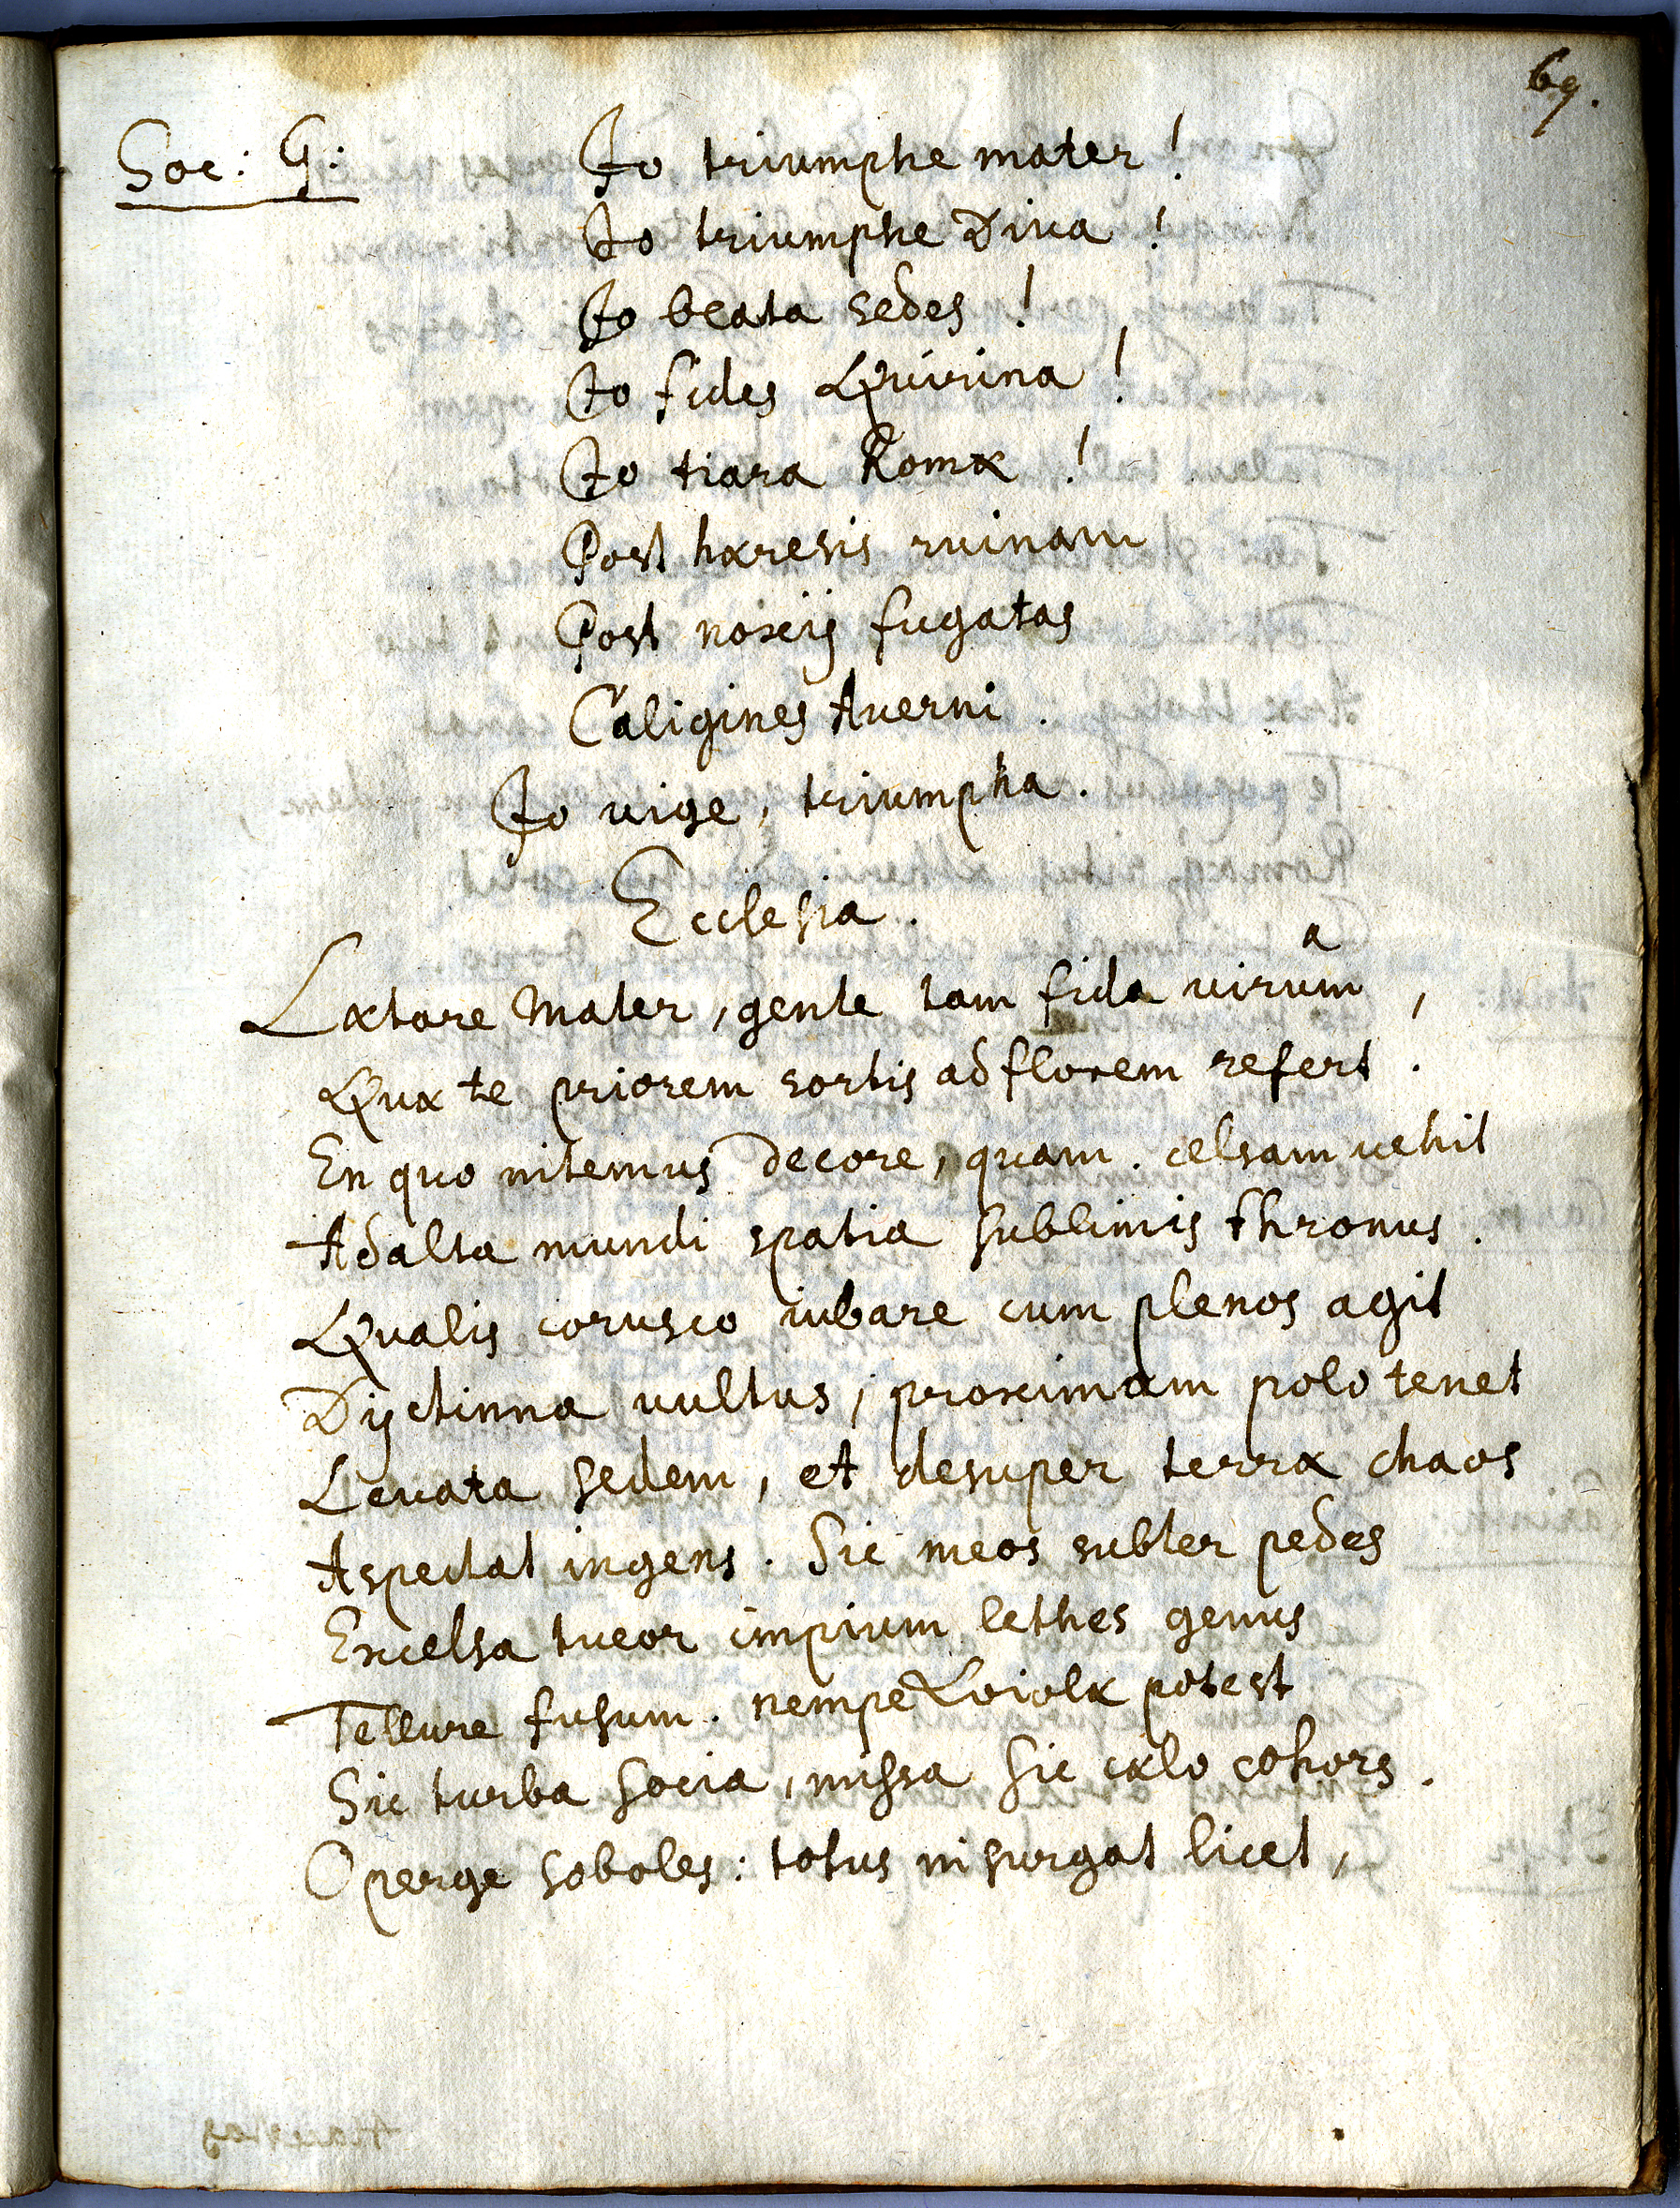 69.
Soc: G: Jo triumphe mater!
Jo triumphe Diua!
Jo beata sedes!
Jo fides Quirina!
Jo tiara Romæ!
Post hæresis ruinam
Post noxiis fugatas
Caligines Auerni.
Jo uige, triumpha.
Ecclesia.
a
Lætare Mater, gente tam fida uirum,
Quæ te priorem sortis ad florem refert.
En quo nitemus decore, quam celsam uehit
Ad alta mundi spatia sublimis thronus.
Qualis corusco iubare cum plenos agit
Dijctinna uultus, proximam polo tenet
Leuata sedem, et desuper terræ chaos
Aspectat ingens. Sic meos subter pedes
Excelsa tueor impium lethes genus
Tellure fusum. nempe Loiolæ potest
Sic turba socia, missa sic cælo cohors.
O perge soboles: totus insurgat licet,